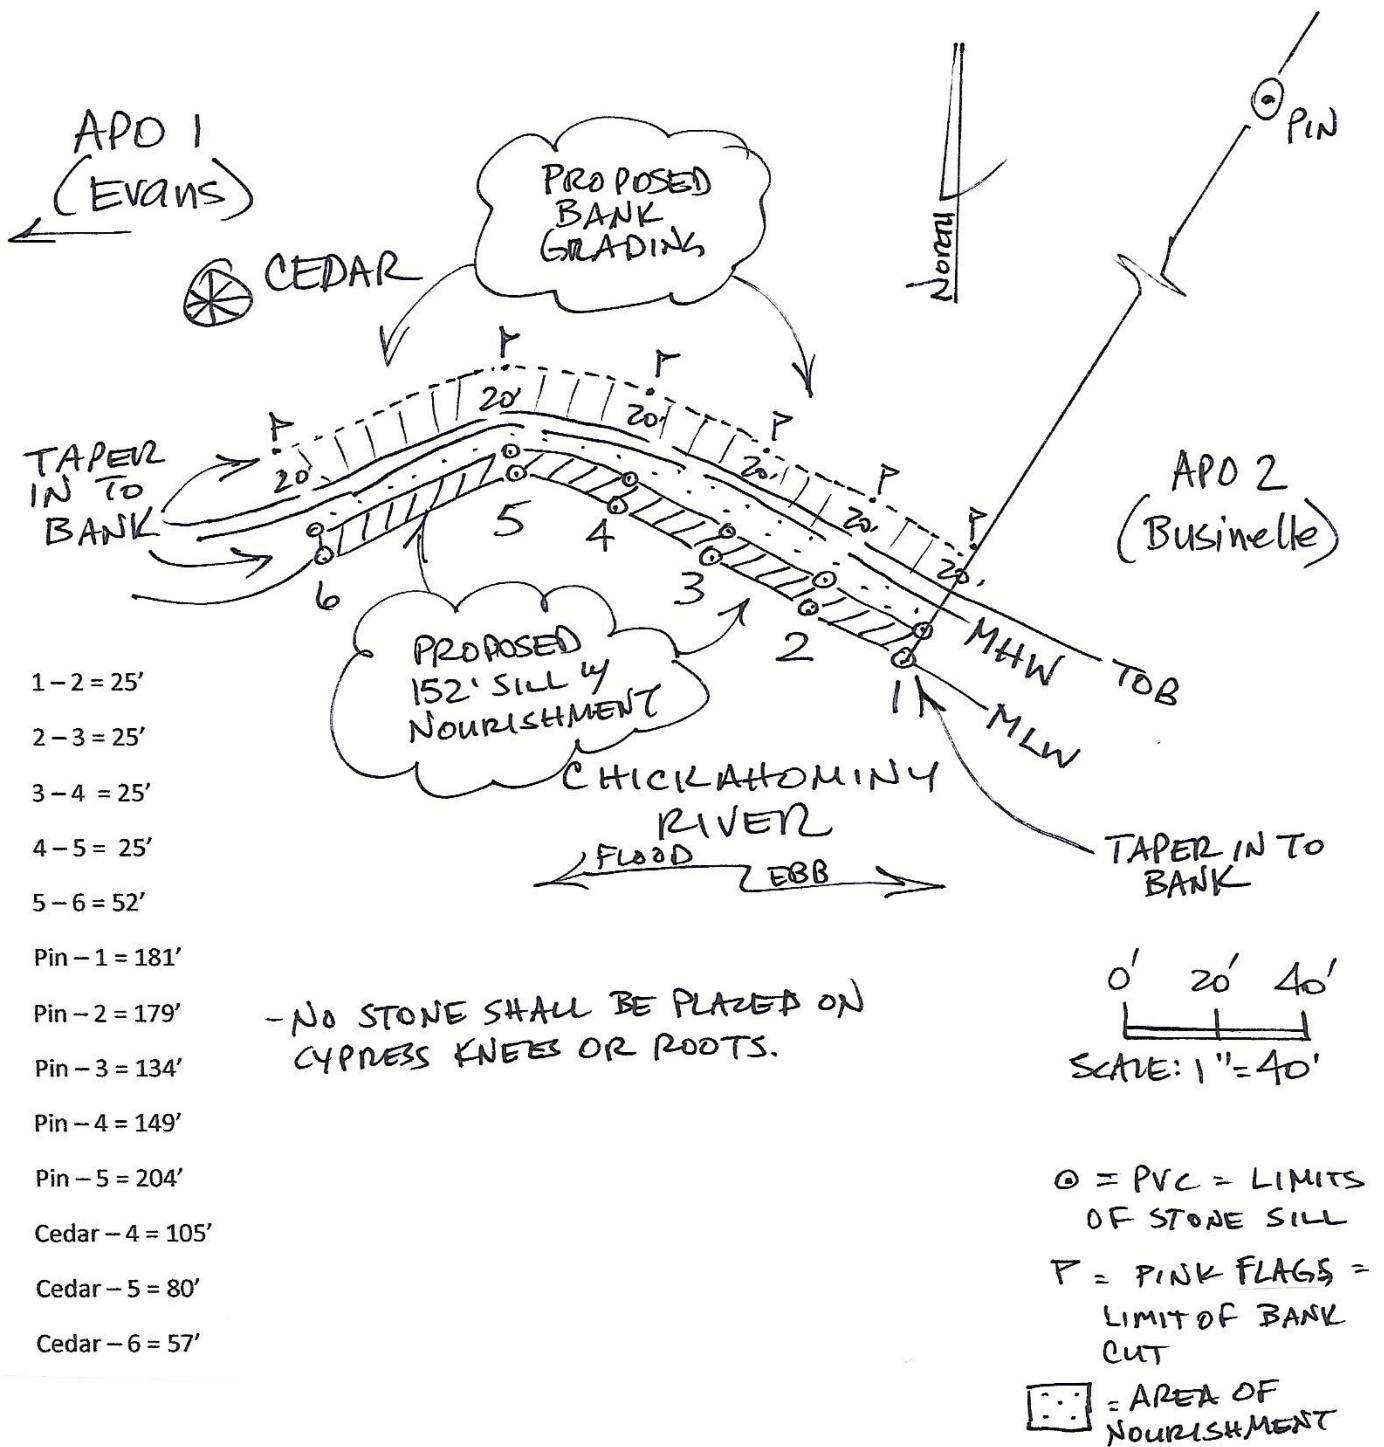 APO 1
(Evans)
CEDAR
PROPOSED
BANK
GRADING
North
PIN
TAPER
IN TO
BANK
20'
20'
20'
20'
20'
20'
APO 2
(Businelle)
6
5
4
3
2
1
MHW
TOB
MLW
PROPOSED
152' SILL W/
NOURISHMENT
CHICKAHOMINY
RIVER
FLOOD
EBB
TAPER IN TO
BANK
1 – 2 = 25'
2 – 3 = 25'
3 – 4 = 25'
4 – 5 = 25'
5 – 6 = 52'
Pin – 1 = 181'
Pin – 2 = 179'
Pin – 3 = 134'
Pin – 4 = 149'
Pin – 5 = 204'
Cedar – 4 = 105'
Cedar – 5 = 80'
Cedar – 6 = 57'
- NO STONE SHALL BE PLACED ON
CYPRESS KNEES OR ROOTS.
0' 20' 40'
SCALE: 1"=40'
= PVC = LIMITS
OF STONE SILL
= PINK FLAGS =
LIMIT OF BANK
CUT
= AREA OF
NOURISHMENT